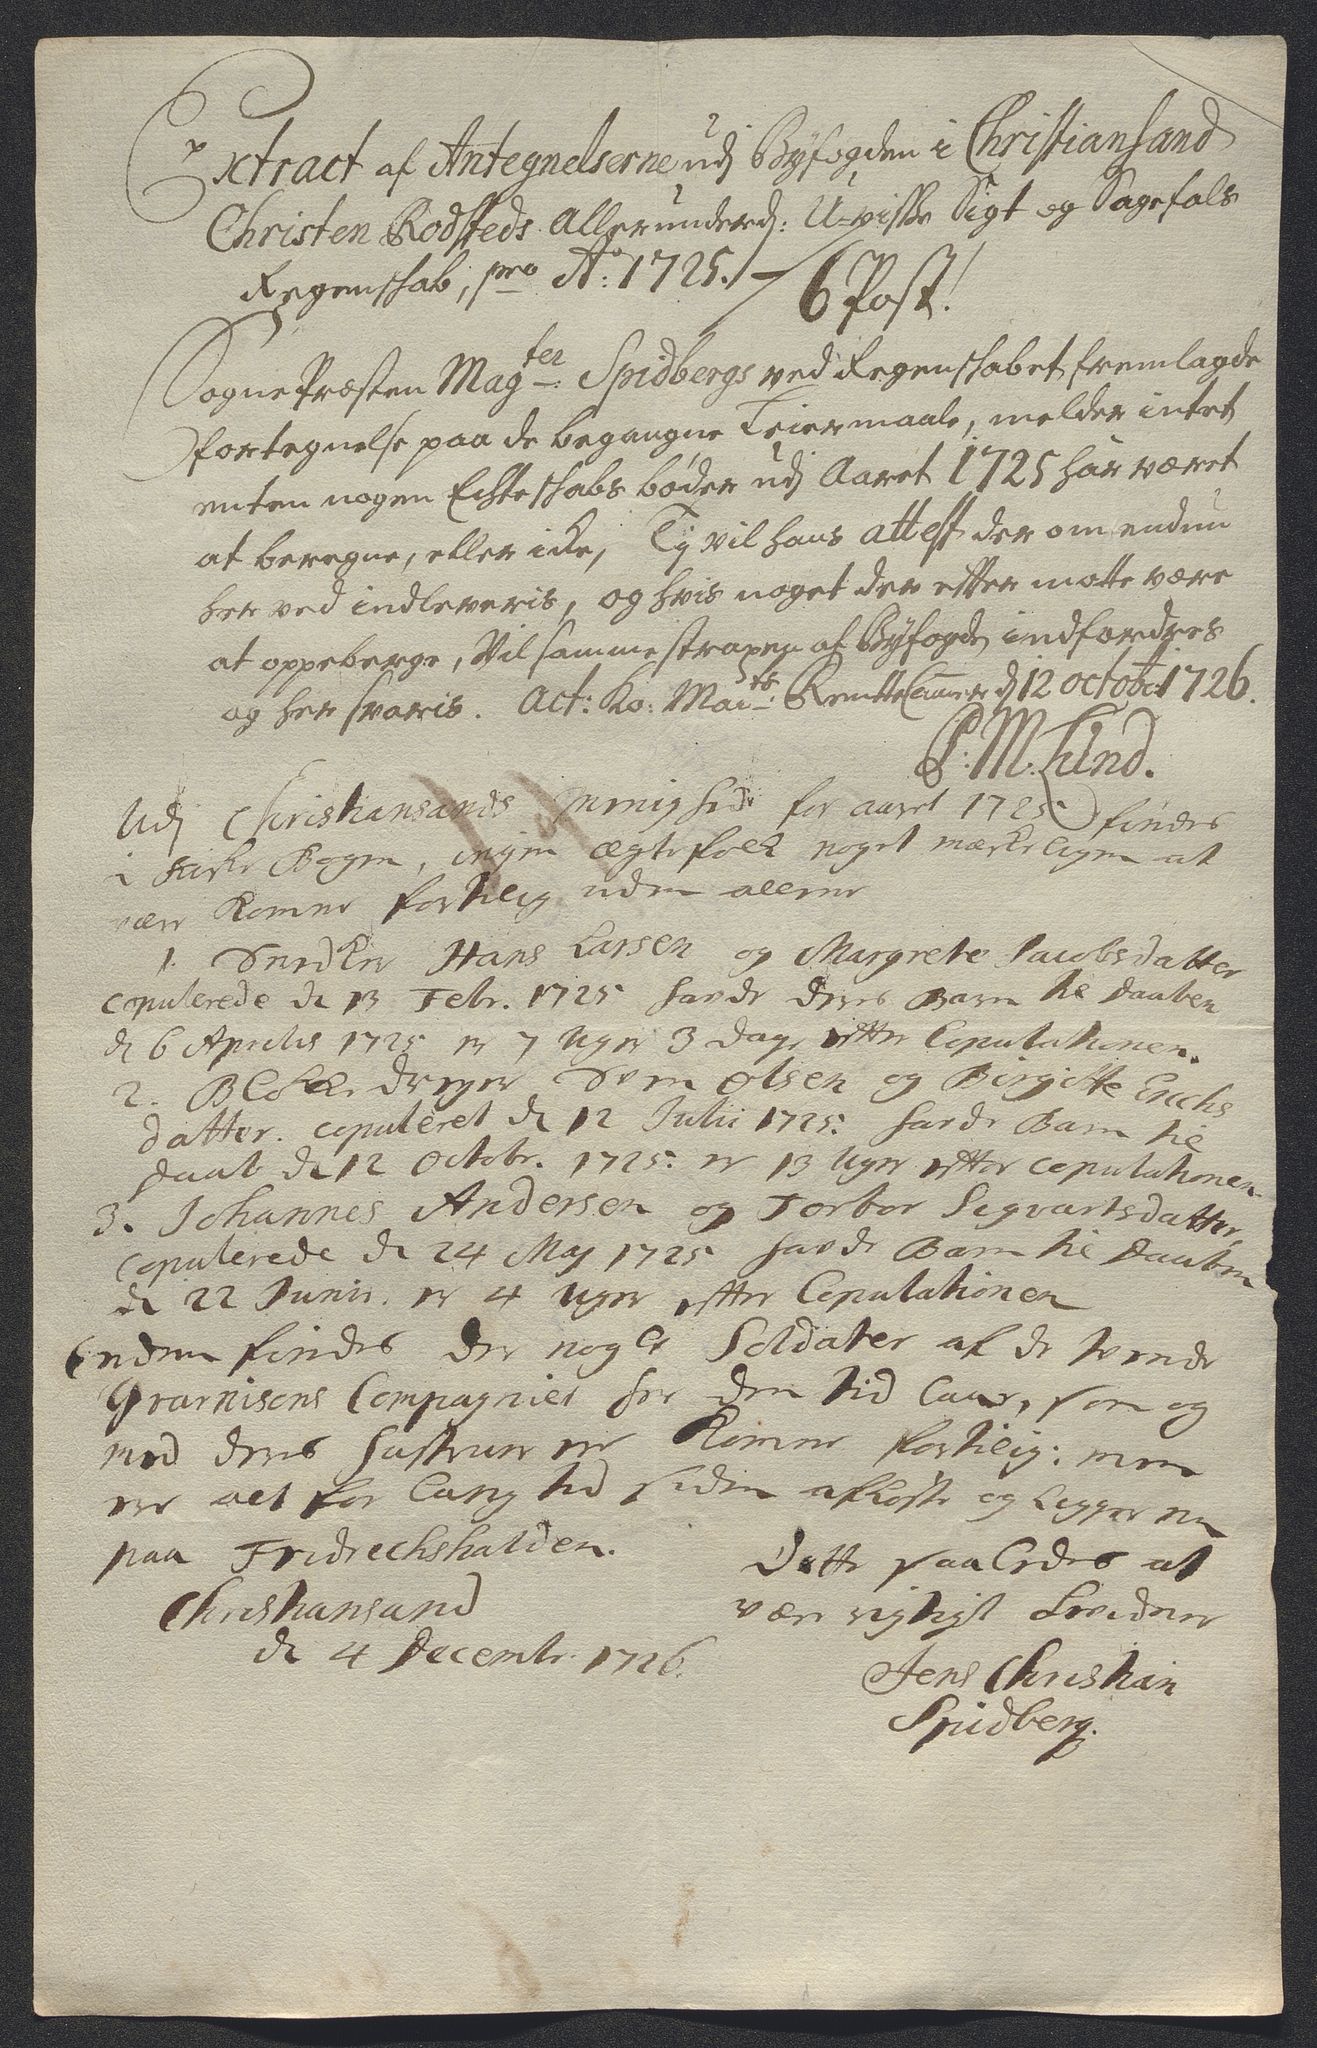 Extract af Antegnelserne udj Byfogden i Christiansand
Christen Rodsteds Allerunderd: U-visse Sigt og Sagefals
Regenskab, pro Ao: 1725. 6 Post!
SognePræsten Magter: Spidbergs ved Regenskabet fremlagde
fortegnelse paa de begangne Leiermaale, melder intet
enten nogen Echteskabs bøder udj Aaret 1725 har været
at beregne, eller icke, Ty vil hans attest der om endnu
her ved indleveris, og hvis noget der efter motte være
at oppeberge, Vil samme strapen af Byfogden indfordres
og her svaris. Act: Ko: Maits: RentteCammer d 12 octobr: 1726.
P: M: Lund.
Udj Christiansands Menighed for aaret 1725 findes
i Kirke Bogen, ingen ægtefolk noget mærkeligen at
være komne for tilig uden allene
1. Snedker Hans Larsen og Margrete Jacobsdatter
copulerede d 13 Febr. 1725 hafde deres Barn til Daaben
d 6 Aprilis 1725 er 7 Uger 3 dage efter Copulationen.
2. Blokkedreyer Sven Olsen og Birgitte Erichs
datter. copuleret d 12 Julii 1725. hafde Barn til
Daab d 12 Octobr. 1725. er 13 Uger efter copulationen
3. Johannes Andersen og Torbor Sigvartsdatter,
copulerede d 24 Maj 1725 hafde Barn til Daaben
d 22 Junii. er 4 Uger efter Copulationen
Enden findes der nogle Soldater af de tvende
Gvarnisons Compagnier her den tid laae, som og
med deres hustruer er komne for tilig: men
er alt for lang tid siden afløste og ligger nu
paa Fridrechshalden.
Dette saaledes at
være rigtigt bevidner
Christiansand
d 4 Decembr. 1726.
Jens Christian
Spidberg.